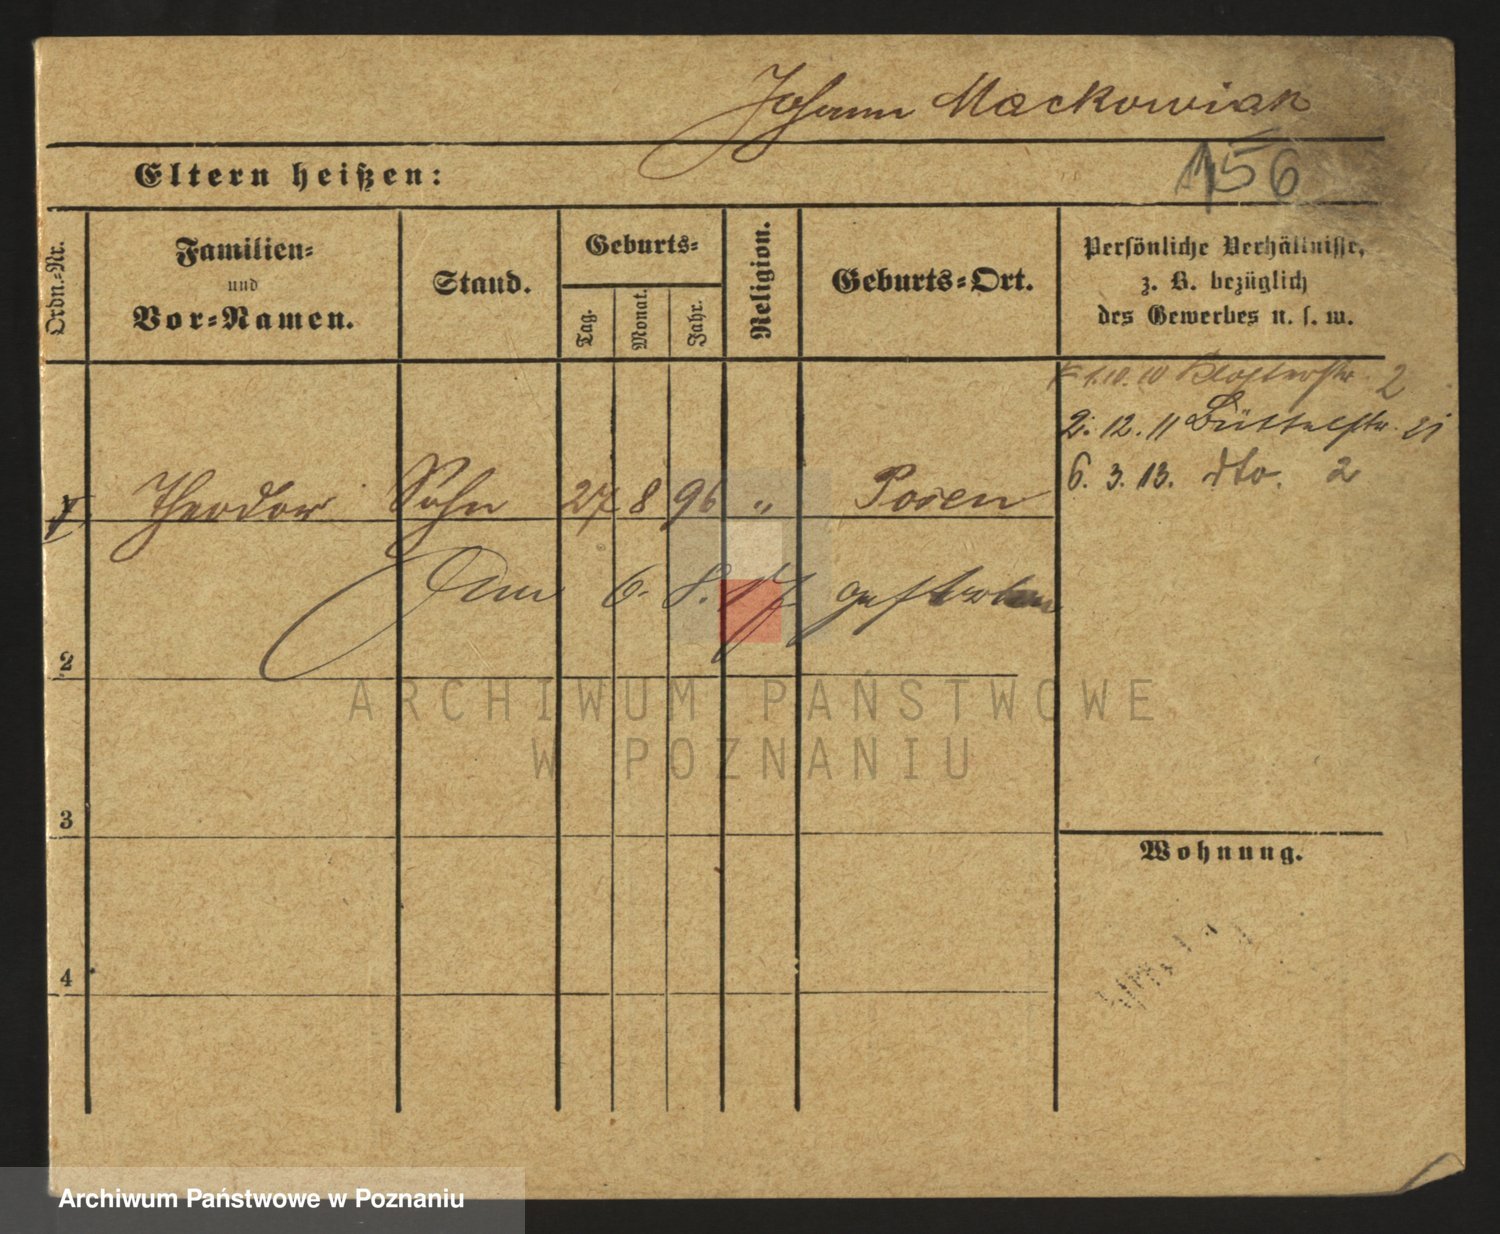 Johann Mackowiak
Eltern heißen:
156
Ordn.-Nr.
Familien-
und
Vor-Namen.
Stand.
Geburts-
Tag.
Monat.
Jahr.
Religion.
Geburts-Ort.
Persönliche Verhältnisse,
z. B. bezüglich
des Gewerbes u. s. w.
1.10.10 Klosterstr. 2
2. 12. 11 Büttelstr. 21
6. 3. 13. dto. 2
1 Theodor Sohn 27 8 96 " Posen
Am 6. 8. 17 gestorben
2
3
4
Wohnung.
ARCHIWUM PAŃSTWOWE
W POZNANIU
Archiwum Państwowe w Poznaniu